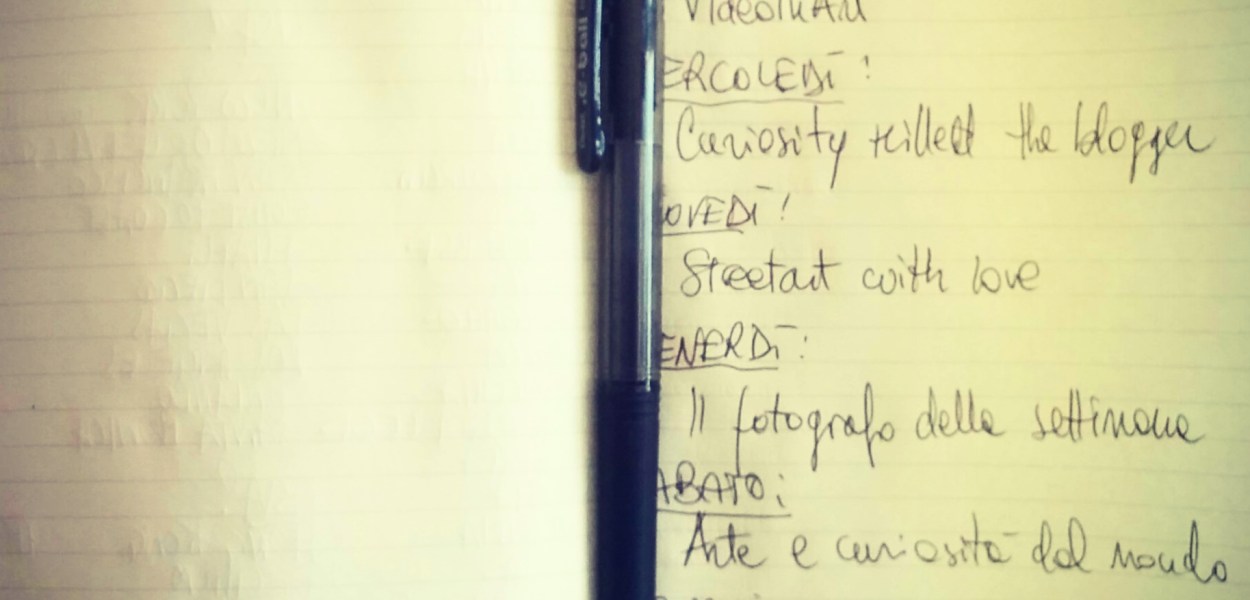 e-ball
ERCOLEDÌ:
Curiosity killed the blogger
OVEDÌ:
Streetart with love
ENERDÌ:
Il fotografo della settimana
ABATO:
Arte e curiosità dal mondo